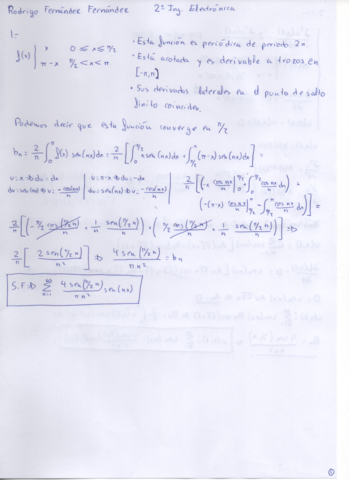 Rodrigo Fernández Fernández 2º Ing. Electrónica
1-
f(x) | x 0 ≤ x ≤ π/2
π-x π/2 < x < π
· Esta función es periódica de periodo 2π
· Está acotada y es derivable a trozos en [-π,π]
· Sus derivadas laterales en el punto de salto finito coinciden.
Podemos decir que esta función converge en π/2
bn = 2/π ∫₀^π f(x) sen(nx)dx = 2/π [∫₀^π/2 x sen(nx)dx + ∫π/2^π (π-x) sen(nx)dx] =
u = x ⇒ du = dx | u = π-x ⇒ du = -dx | 2/π [(-x cos nx/n |₀^π/2 + ∫₀^π/2 cos nx/n dx) +
dv = sen(nx) ⇒ v = -cos(nx)/n | dv = sen(nx) ⇒ v = -cos(nx)/n | (-(π-x) cos nx/n |π/2^π - ∫π/2^π cos nx/n dx)] =
2/π [(-π/2 cos(π/2 n)/n + 1/n · sen(π/2 n)/n) + (π/2 cos(π/2 n)/n + 1/n · sen(π/2 n)/n)] ⇒
2/π [2 sen(π/2 n)/n²] ⇒ 4 sen(π/2 n)/πn² = bn
S.F ⇒ ∑ n=1 ^∞ 4 sen(π/2 n)/πn² sen(nx)
①